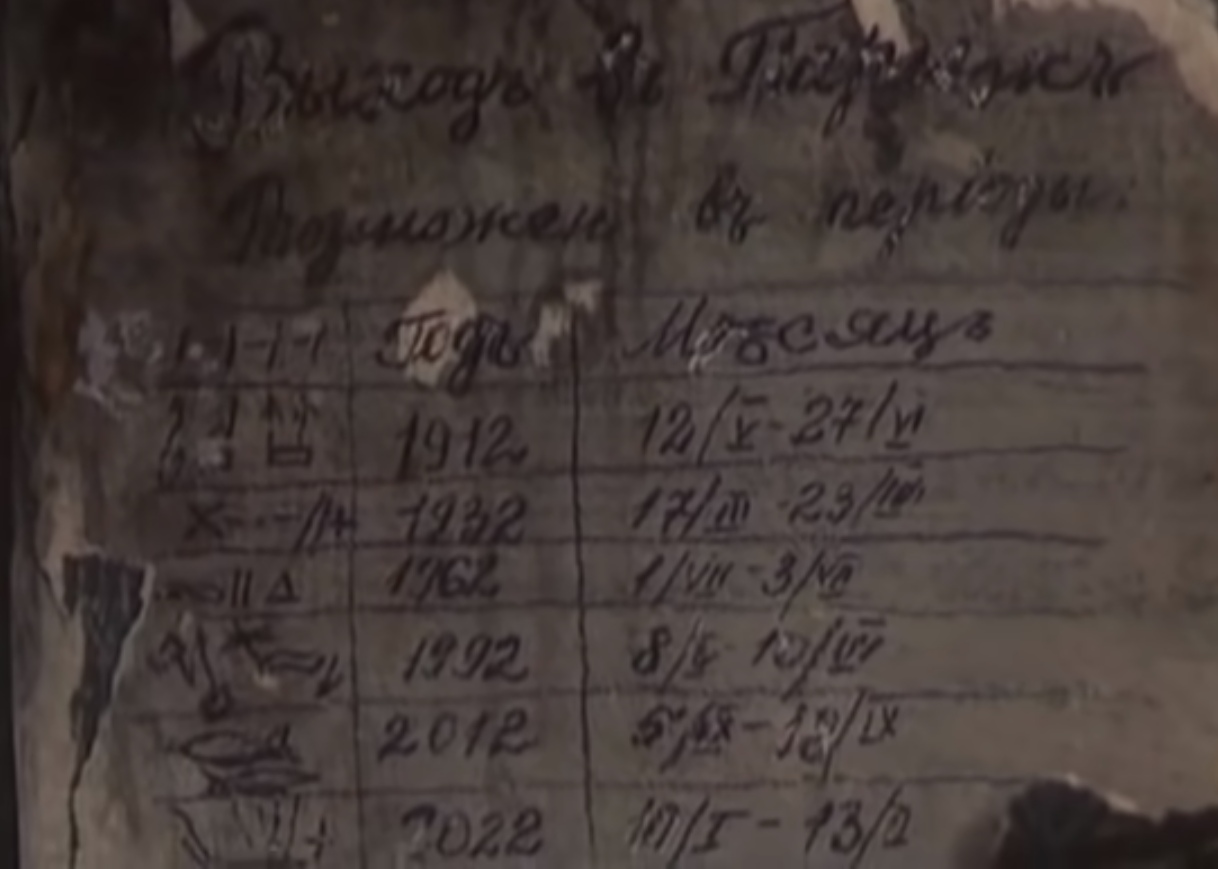 Выходъ въ Парижъ
Возможен въ періоды:
Годъ Мѣсяцъ
1912 12/V - 27/VI
1932 17/III - 23/
1962 1/VII - 3/VII
1992 8/
2012 5/IX - /IX
2022 /I - 13/